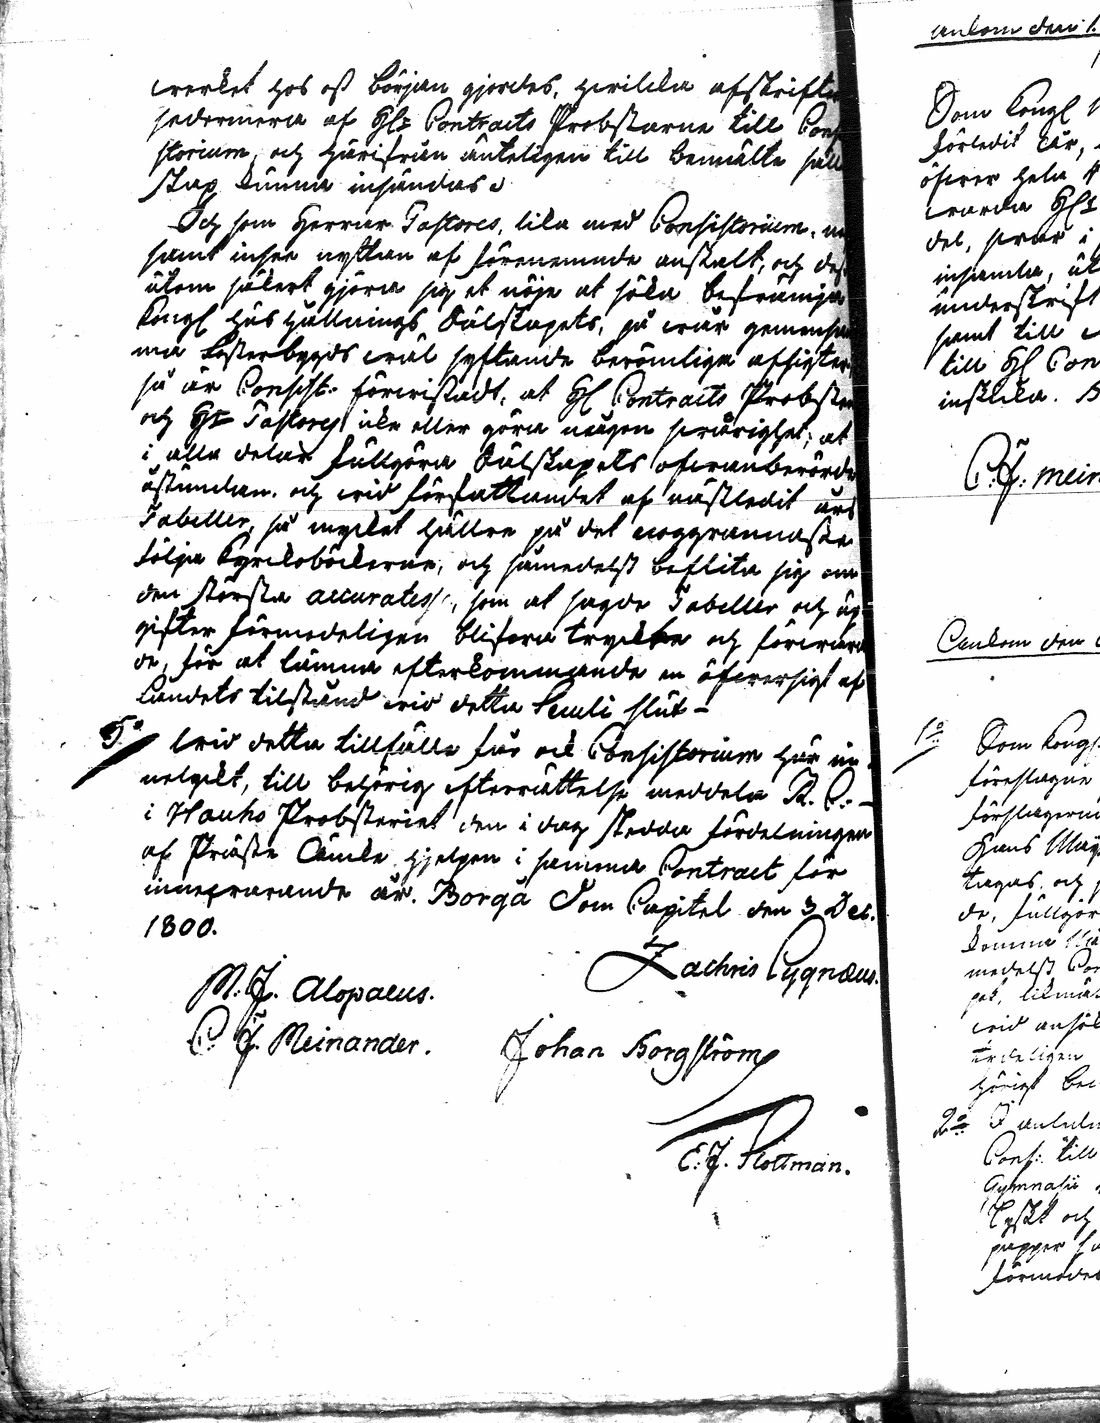 werket hos oss början gjordes, hwilka afskrifter
sedermera af Hlr Contracts Probstarne till Con
storium, och härifrån änteligen till bemälte säll
skap kunna insändas.
Och som Herrar Pastores, lika med Consistorium,
samt inse nyttan af förenemnde anstalt, och des
utom säkert göra sig et nöje at söka befrämja
Kongl Hushållnings Sälskapets, på wår gemensa
ma fosterbygds wäl syftande berömliga afsigter
så är Consist: förwissadt, at Hl Contracts Probstar
och Hr Pastores icke eller göra någon swårighet, at
i alla delar fullgöra Sälskapets ofwanberörde
åstundan, och wid författandet af nästledit års
Tabeller, så mycket hällre på det noggrannaste
följa Kyrkoböckerne, och såmedelst beflita sig om
den största accuratess, som at sagde Tabeller och up-
gifter förmodeligen blifwa tryckte och förwara
de, för at lämna efterkommande en öfwersigt af
Landets tilstånd wid detta Seculi slut –
5.o Wid detta tillfälle får ock Consistorium här in-
nelykt, till behörig efterrättelse meddela V. P. –
i Hauho Probsteriet den i dag skedda fördelningen
af Präste Enke hjelpen i samma Contract för
innewarande år. Borgå Dom Capitel den 3 Dec.
1800.
Zachris Cygnæus.
M. J. Alopaeus.
C. J. Meinander. Johan Borgström
E. J. Flottman.
ankom den 1.
Som Kongl
förledit år,
öfwer hela
warda Hlr
del, swar i
insamla, ut
underskrift
samt till
till Hl Con
inskicka. B
C. J. Mein
Ankom den
1o Som Kongl.
föreslagne
förslagerne
Hans May
tagas, och
de, fullgör
komma
medelst Con
pet, likmä
wid anfö
ordeligen
högst be
2o I anledn
Cons: till
Gymnasii
Tyskt och
papper
förmode